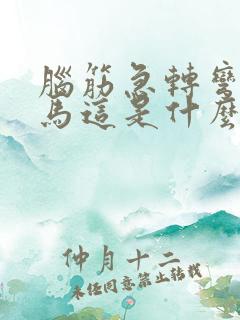 腦筋急轉彎
馬這是什麼
仲月十二
未經同意禁止轉載